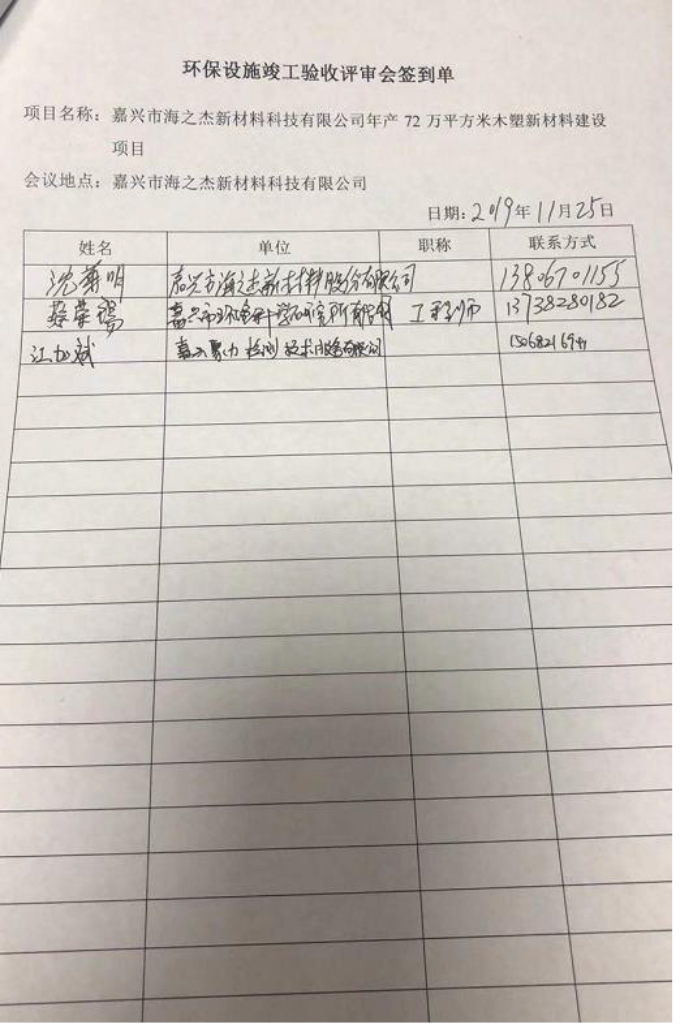 环保设施竣工验收评审会签到单
项目名称：嘉兴市海之杰新材料科技有限公司年产 72 万平方米木塑新材料建设
项目
会议地点：嘉兴市海之杰新材料科技有限公司
日期：2019年11月25日
姓名 单位 职称 联系方式
沈 明 嘉兴市海之杰新材料股份有限公司 13806701155
蔡荣 嘉兴市环境科学研究所有限公司 工程师 13738280182
江加斌 嘉兴聚力检测技术服务有限公司